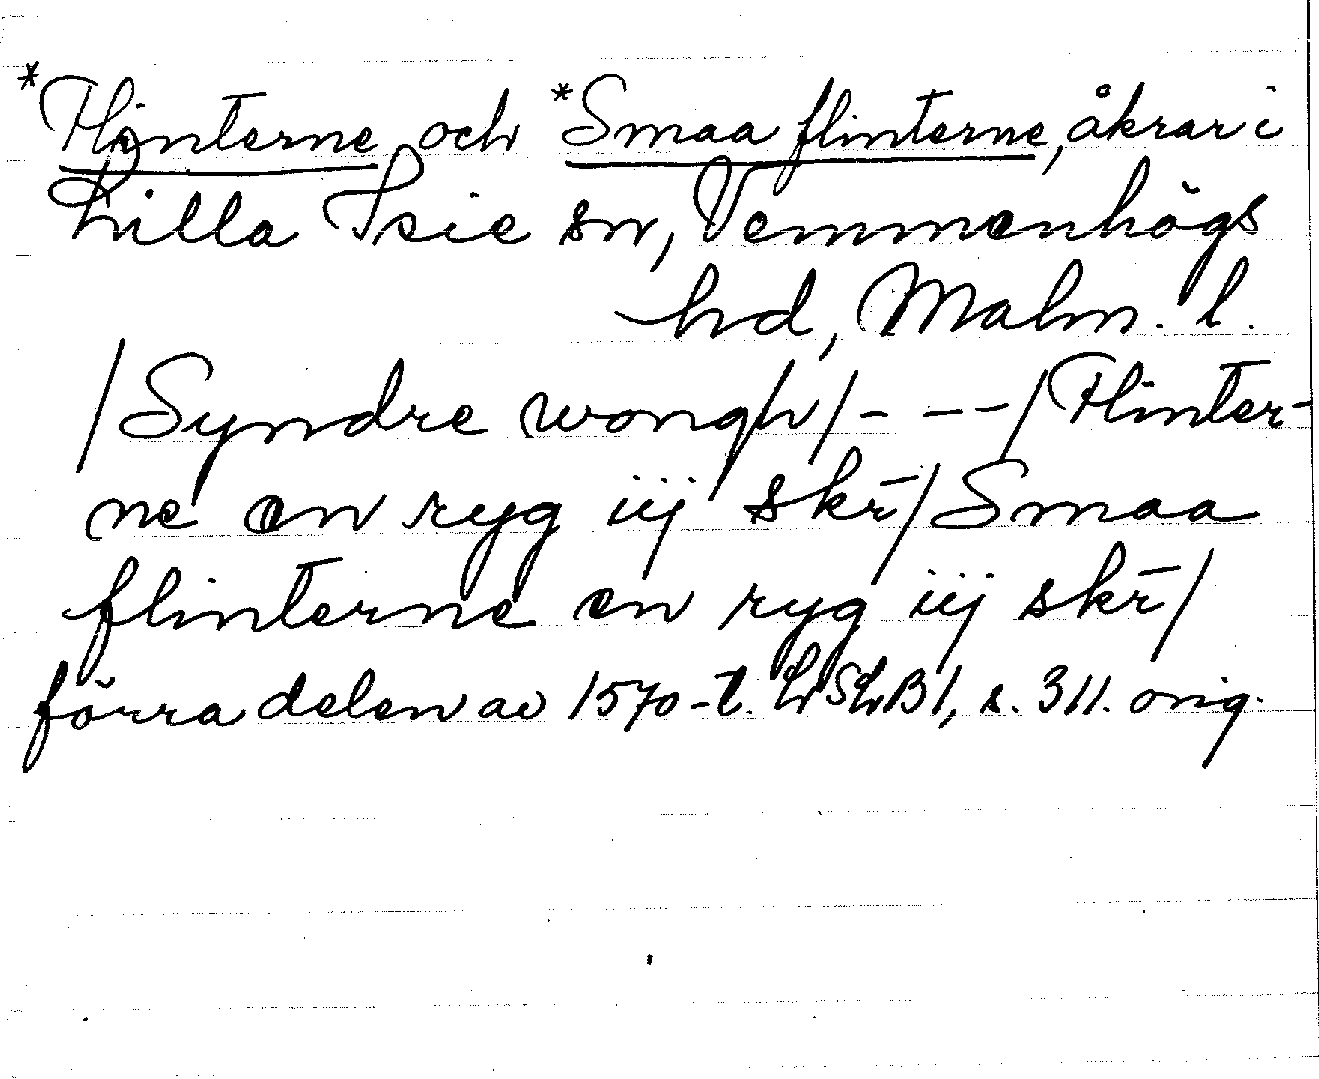 *Flinterne och *Smaa flinterne, åkrar i
Lilla Isie sn, Vemmenhögs
hd, Malm. l.
/Syndre wongh/- - --/Flinter-
ne en ryg iij skr̄/Smaa
flinterne en ryg iij skr̄/
förra delen av 1570-t. LSLB1, s. 311. orig.